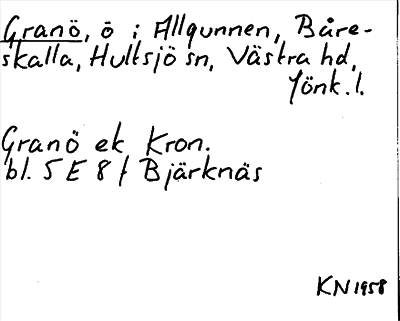 Granö, ö i Allgunnen, Båre-
skalla, Hultsjö sn, Västra hd,
Jönk. l.
Granö ek Kron.
bl. 5 E 8 f Bjärknäs
KN 1958